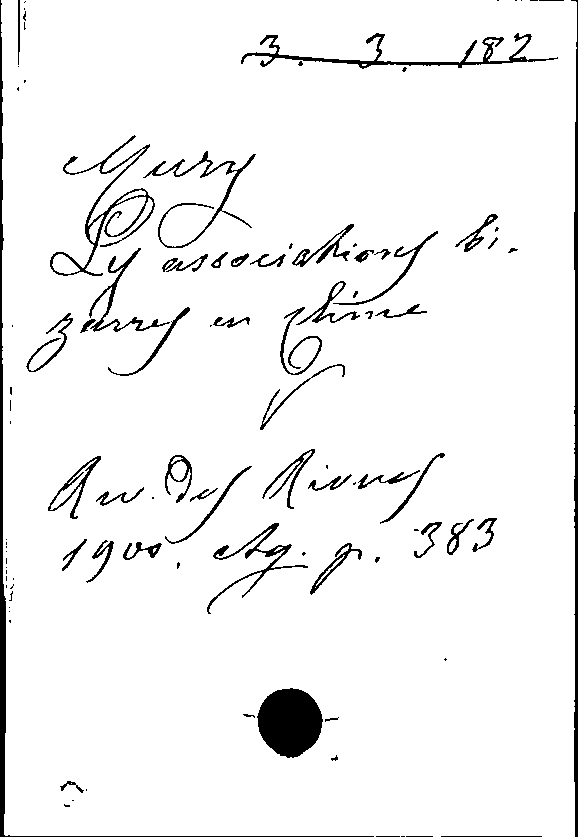 3. 3. 182
Mury
Les associations bi-
zarres en Chine
Rev. des Revues
1900. Ag. p. 383